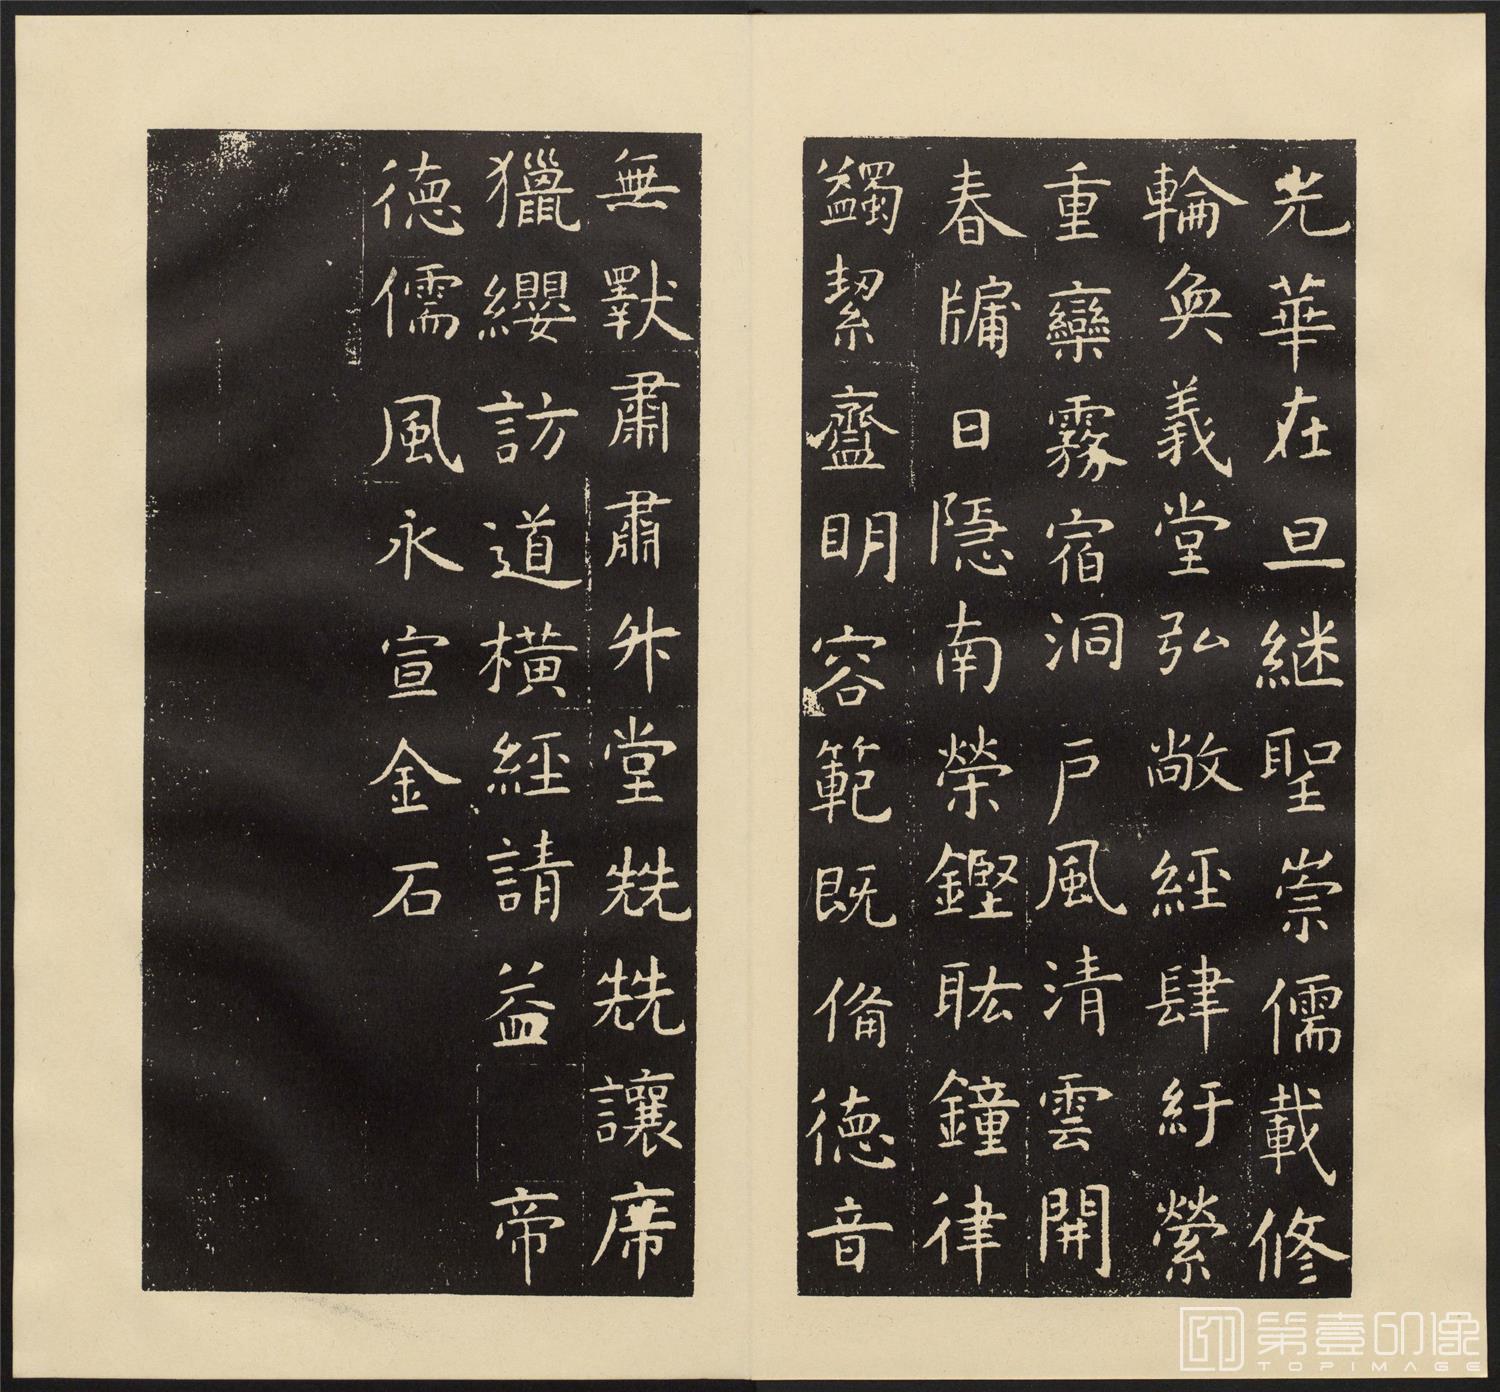 光華在旦継聖崇儒載修
輪奐義堂弘敞經肆紆縈
重欒霧宿洞戶風清雲開
春牖日隱南榮鏗耾鐘律
蠲絜齍明容範既備德音
無斁肅肅升堂兟兟讓席
獵纓訪道橫經請益 帝
德儒風永宣金石
第壹印像
TOPIMAGE